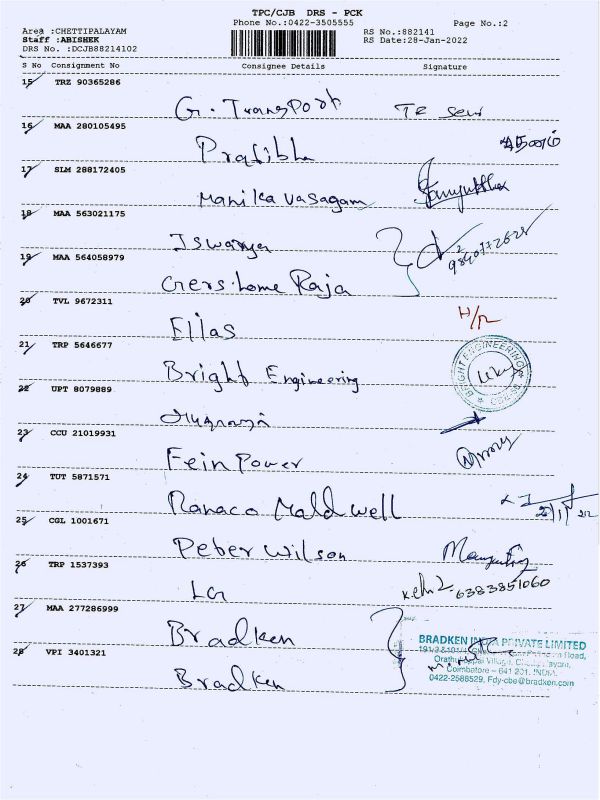 TPC/CJB DRS - PCK
Phone No.:0422-3505555 Page No.:2
Area :CHETTIPALAYAM RS No.:882141
Staff :ABISHEK RS Date:28-Jan-2022
DRS No. :DCJB88214102
S No Consignment No Consignee Details Signature
15 TRZ 90365286
G. Transport
16 MAA 280105495
Pratibha
17 SLM 288172405
Manikavasagam
18 MAA 563021175
Iswarya
19 MAA 564058979
Gershome Raja
20 TVL 9672311
H/R
Ellas
21 TRP 5646677
Bright Engineering
BRIGHT ENGINEERING
22 UPT 8079889
23 CCU 21019931
Fein Power
24 TUT 5871571
Ranaco Maldwell
25 CGL 1001671
Peter Wilson
26 TRP 1537393
LG 6383851060
27 MAA 277286999
Bradken
BRADKEN INDIA PRIVATE LIMITED
28 VPI 3401321
Bradken
Coimbatore - 641 201. INDIA.
0422-2586529, Fdy-cbe@bradken.com